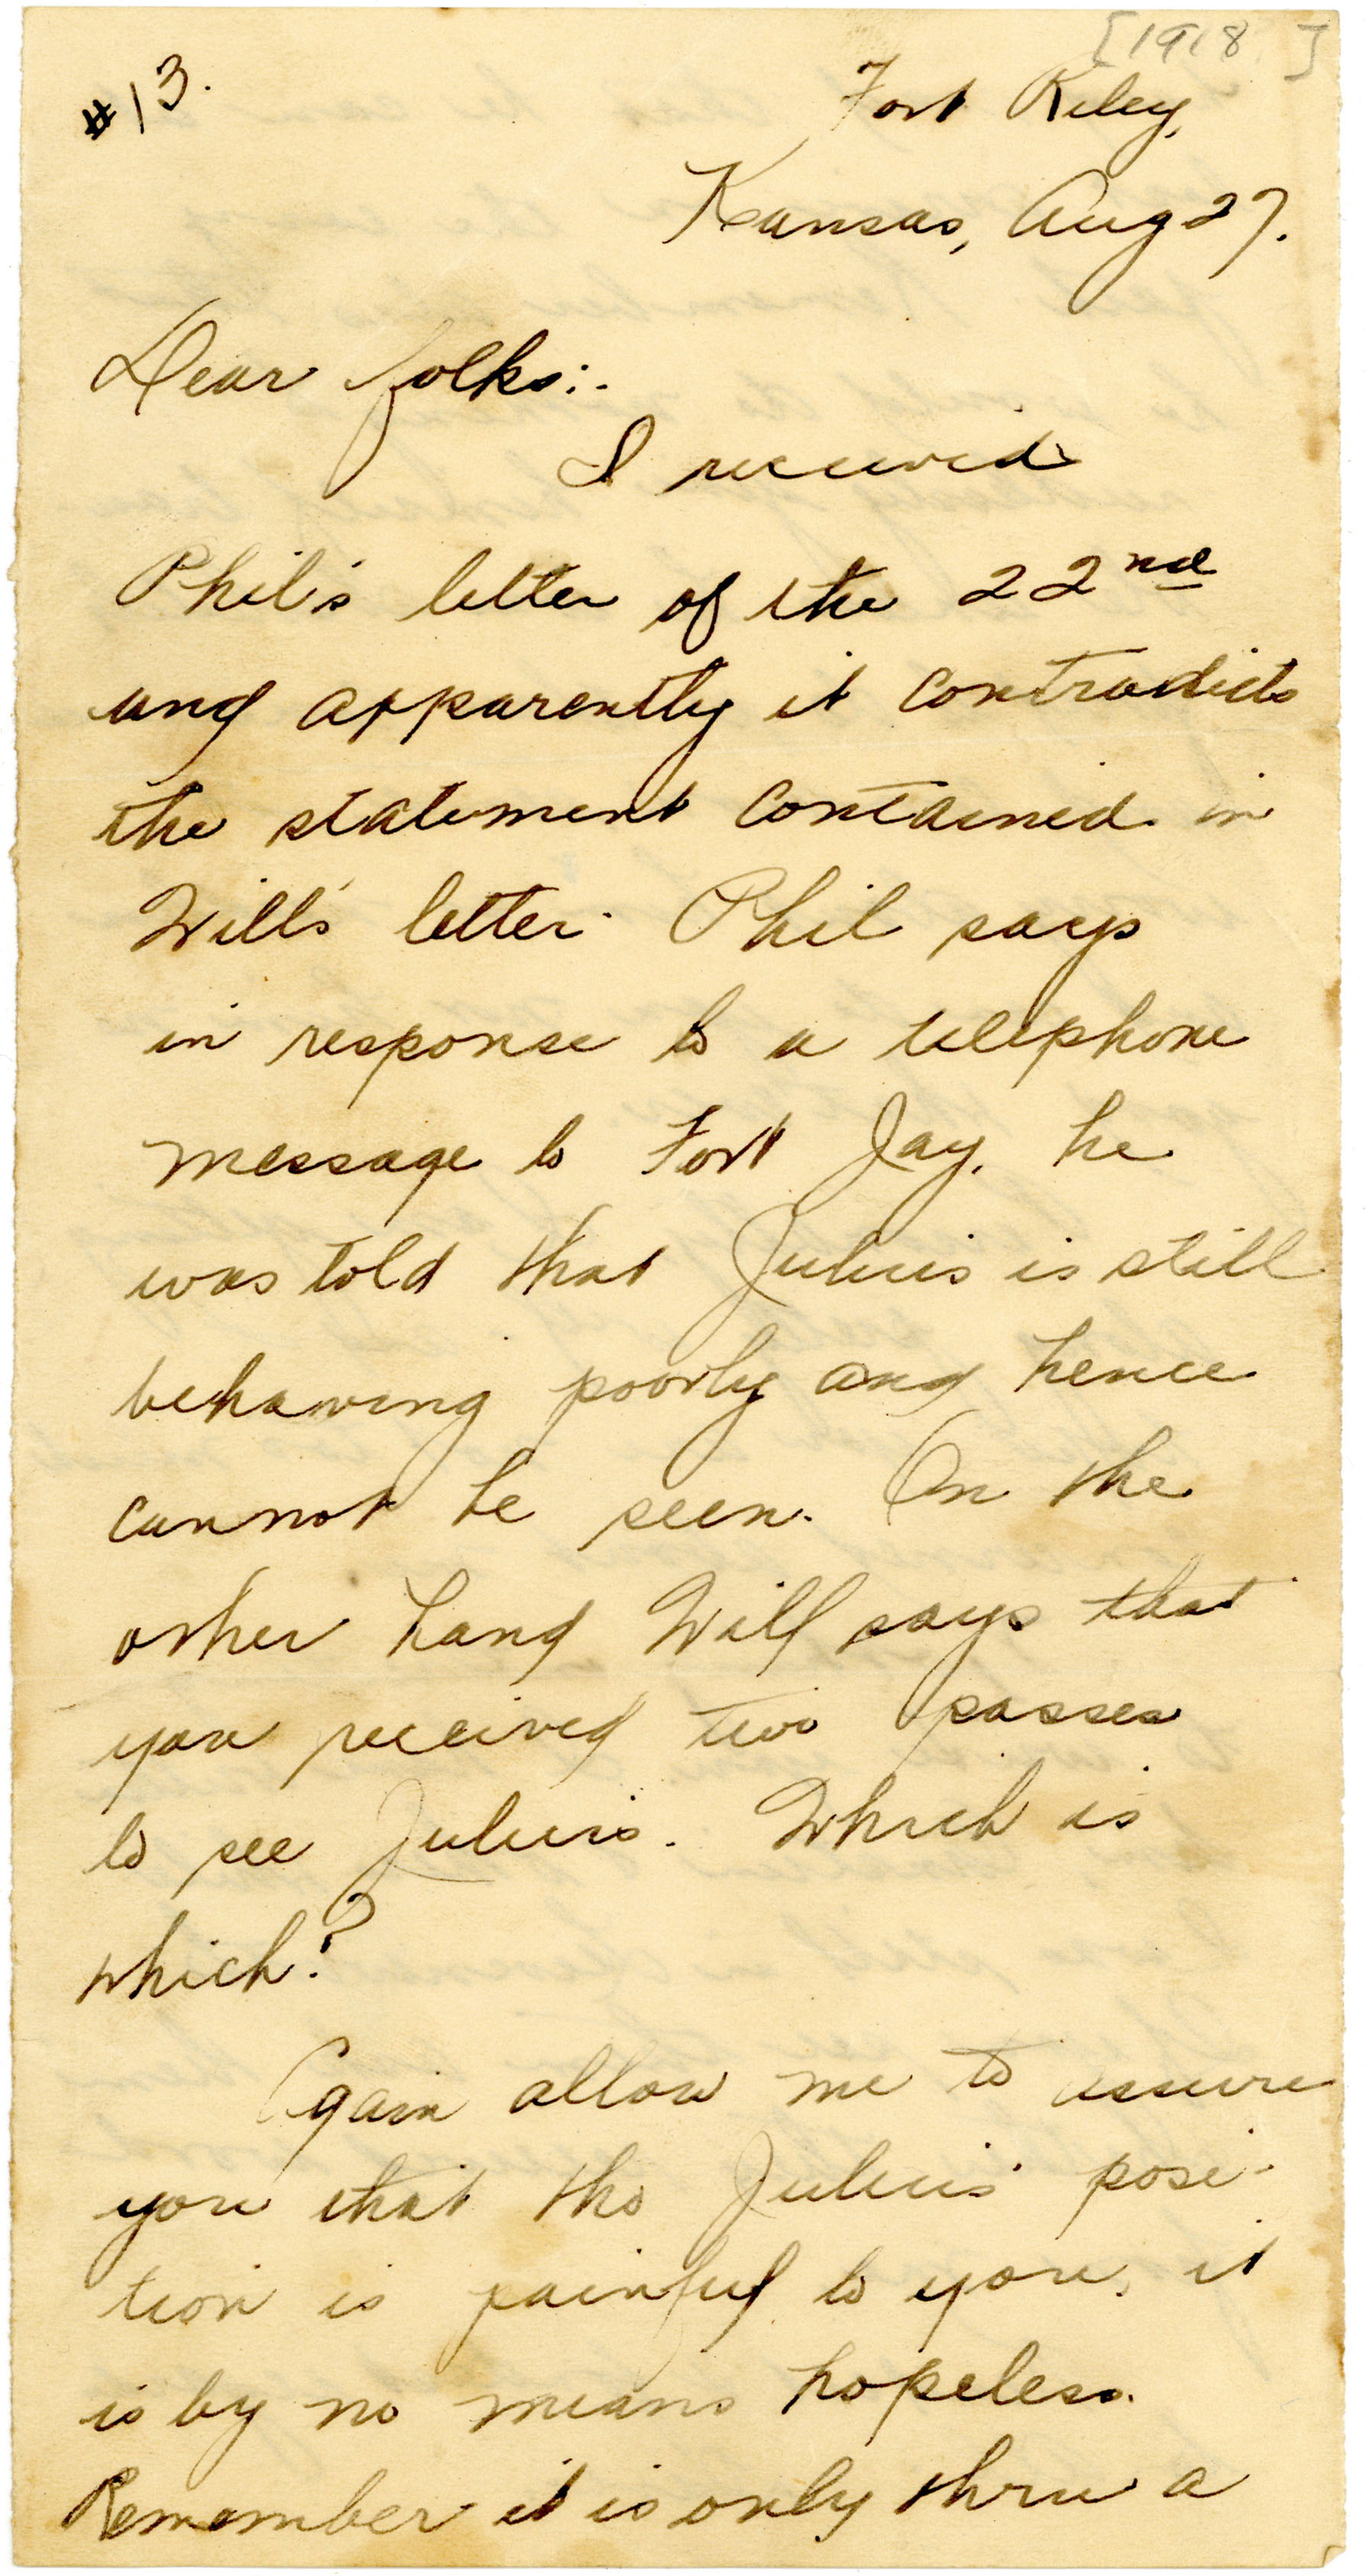 [1918 ]
#13.
Fort Riley,
Kansas, Aug 27.
Dear folks:-
I received
Phil's letter of the 22nd
and apparently it contradicts
the statement contained in
Will's letter. Phil says
in response to a telephone
message to Fort Jay, he
was told that Julius is still
behaving poorly and hence
cannot be seen. On the
other hand Will says that
you received two passes
to see Julius. Which is
which?
Again allow me to assure
you that tho Julius' posi-
tion is painful to you, it
is by no means hopeless.
Remember it is only thru a